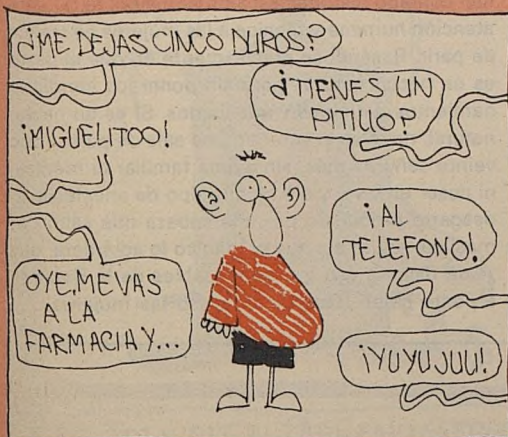 ¿ME DEJAS CINCO DUROS?
¿TIENES UN
PITILLO?
¡MIGUELITOO!
¡AL
TELEFONO!
OYE, ME VAS
A LA
FARMACIA Y...
¡YUYUJUU!